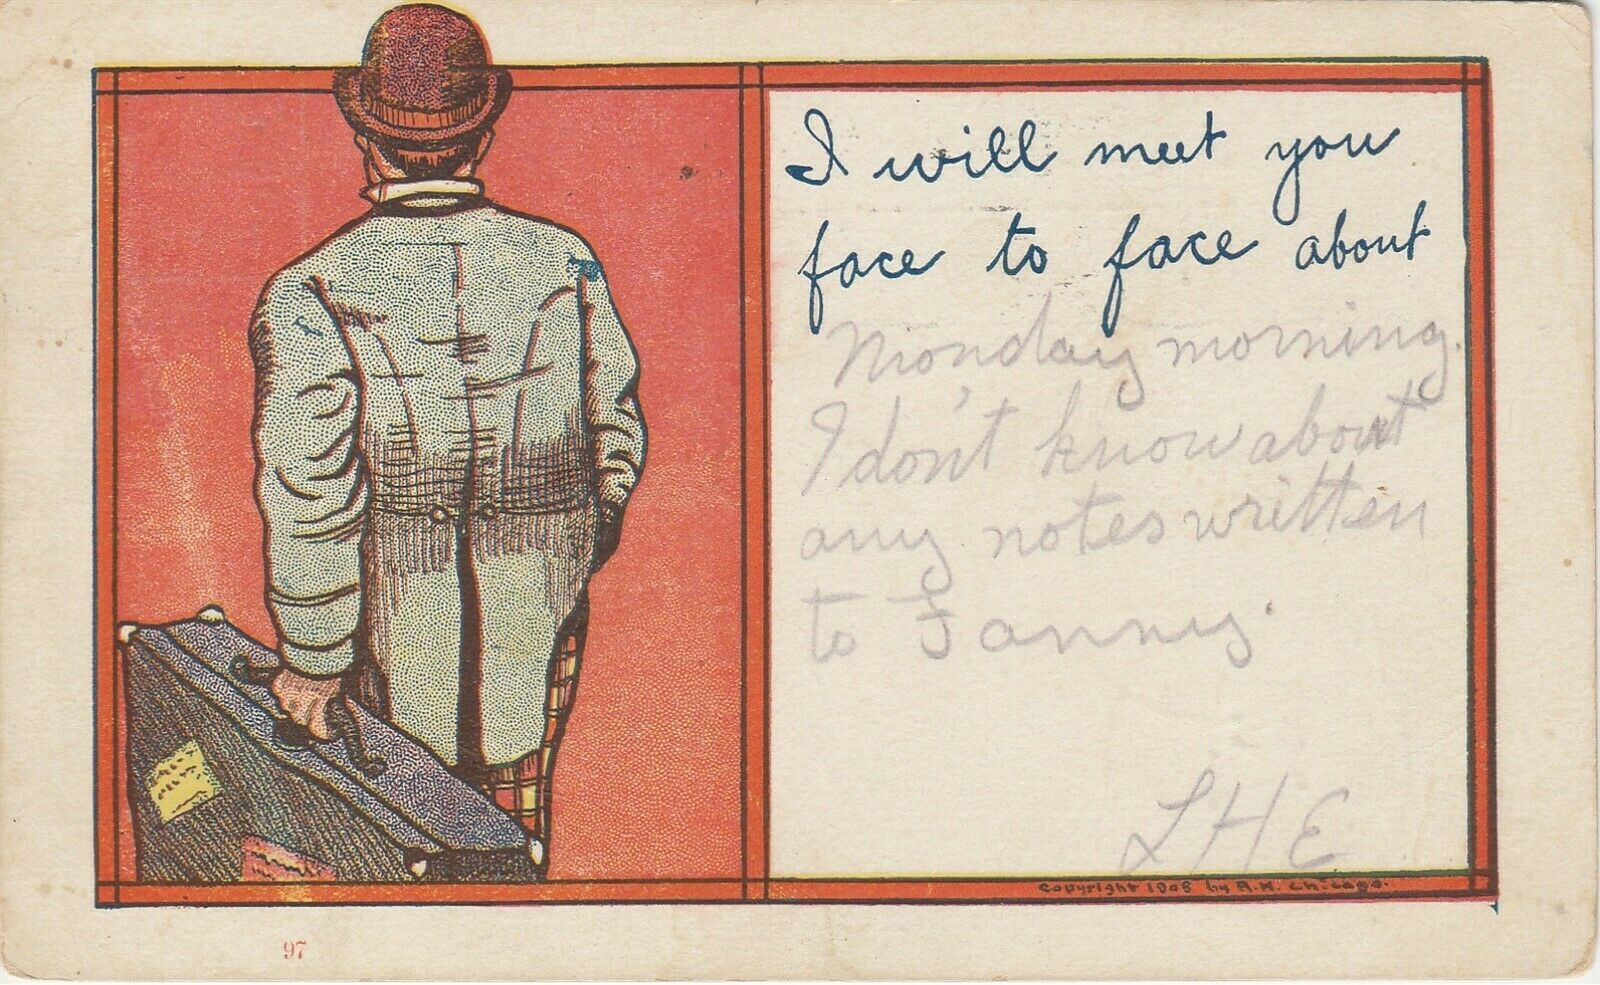 I will meet you
face to face about
Monday morning.
I don't know about
any notes written
to Fanny.
L H E
Copyright 1906 by R.H. Chicago.
97